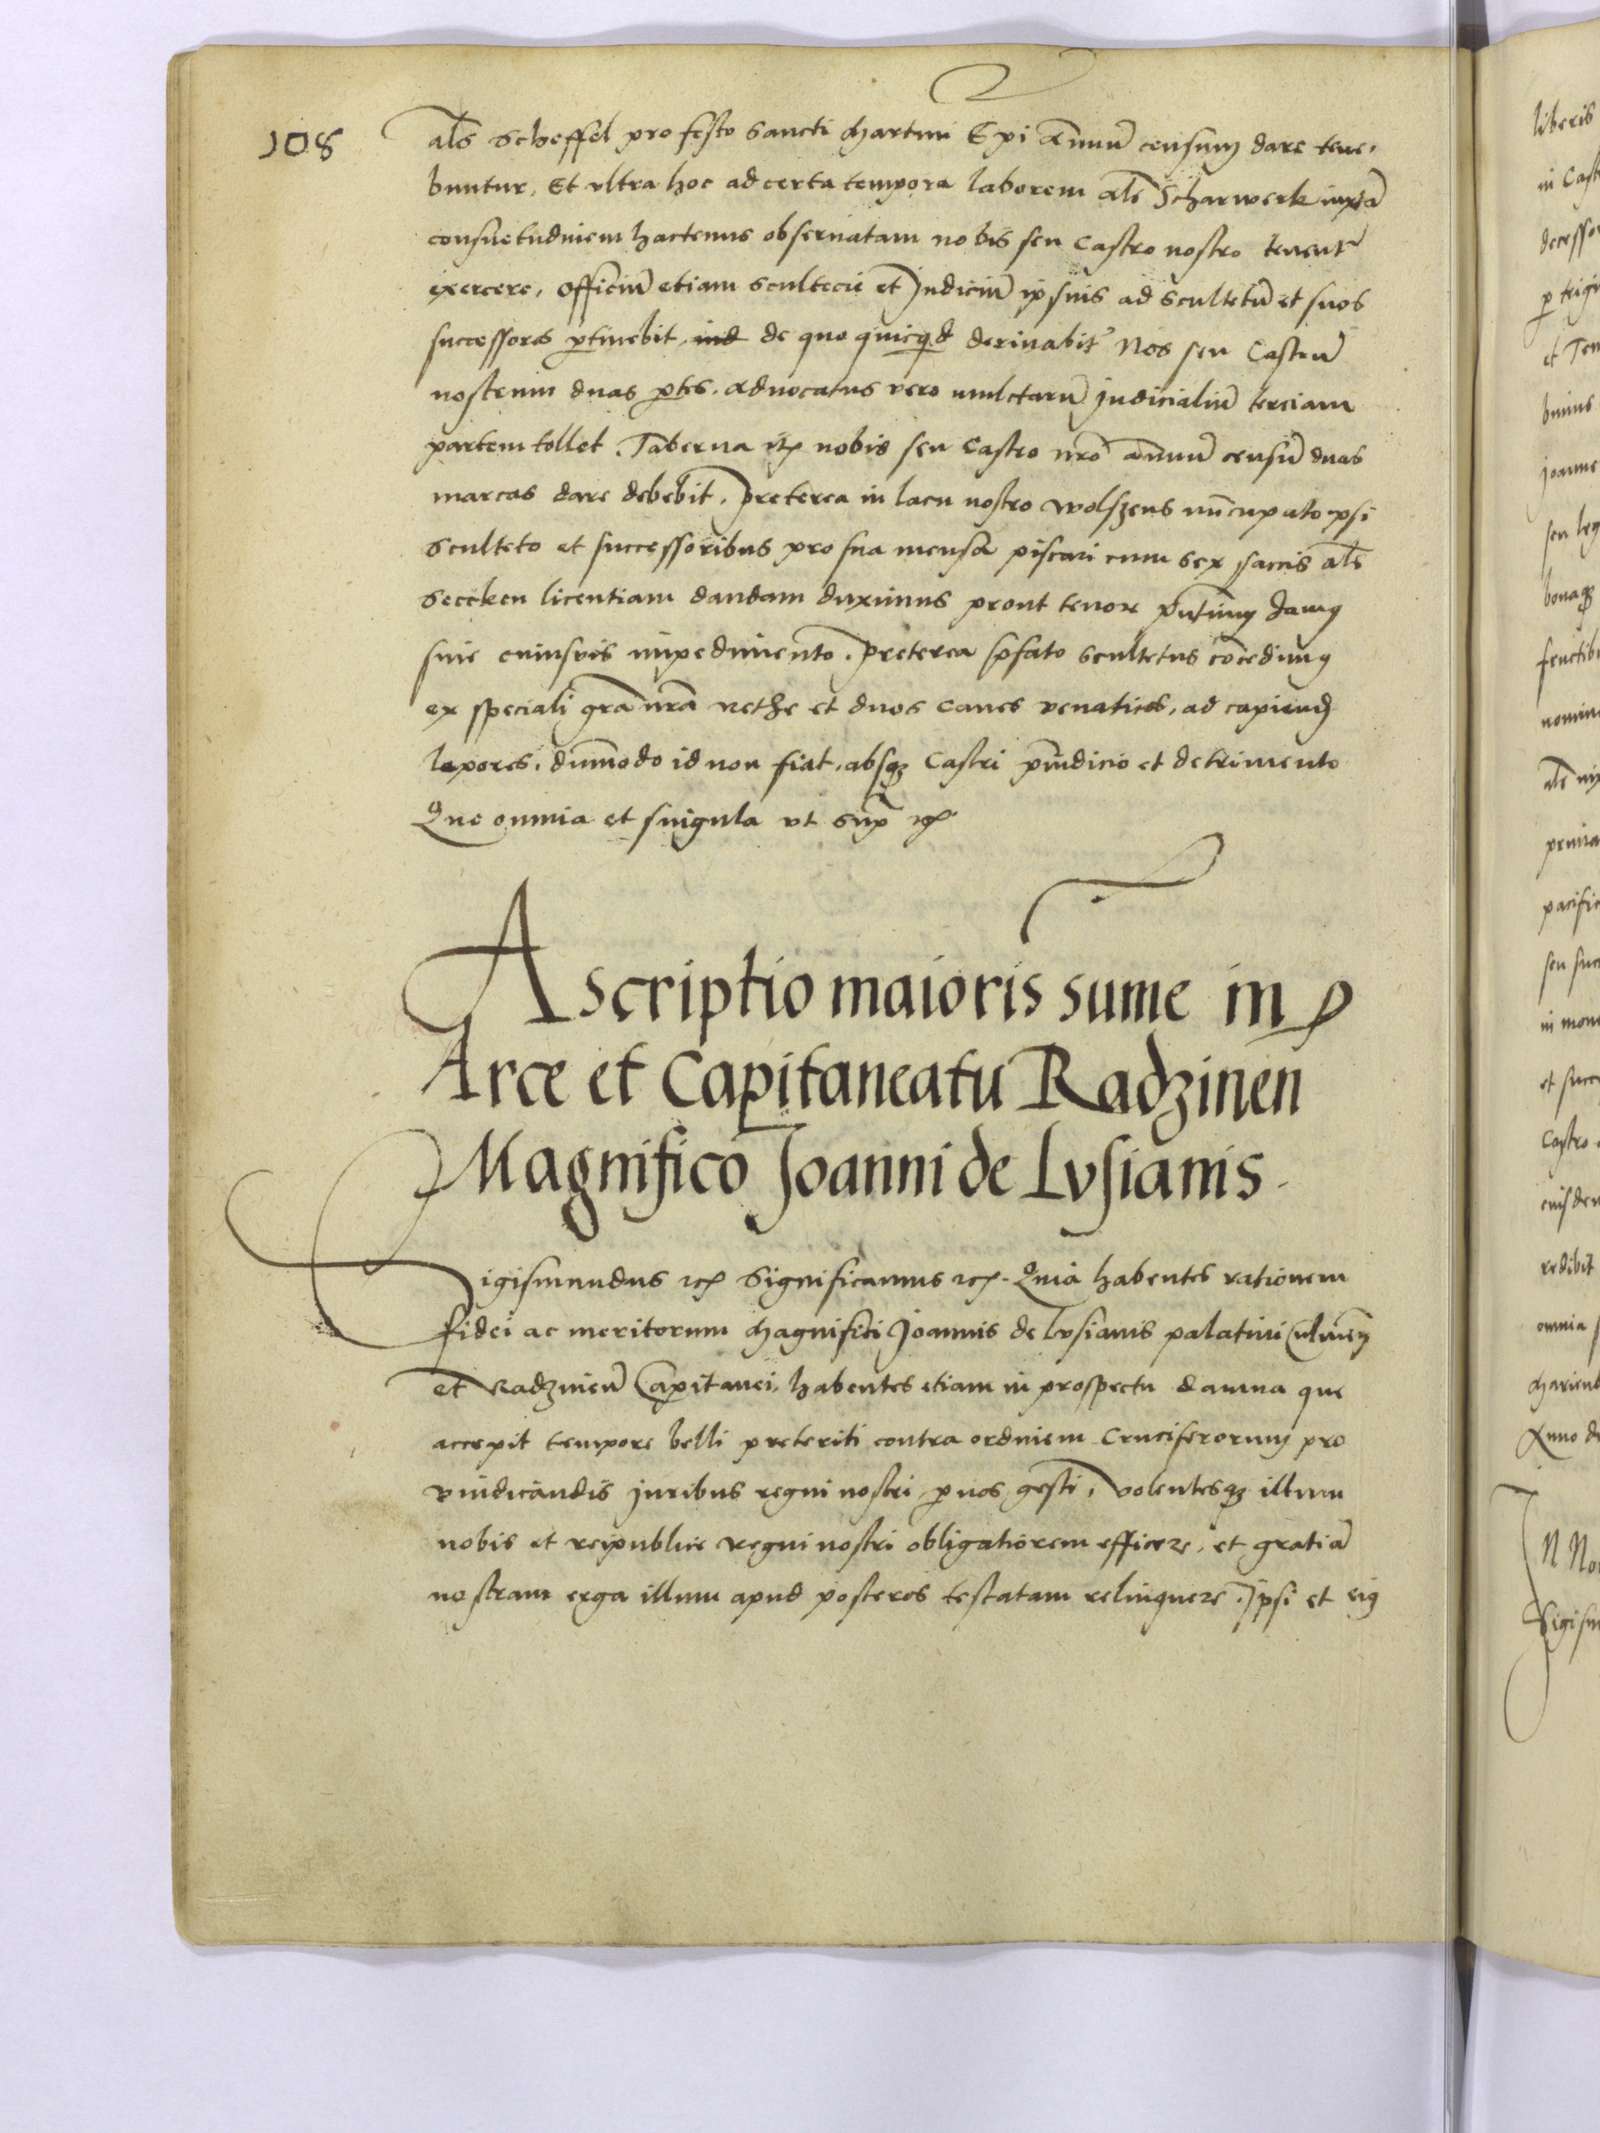 108
als Scheffel pro festo Sancti Martini Epi Annuũ censum dare tene,
buntur, Et vltra hoc ad certa tempora laborem als Scharwerk iuxta
consuetudinem hactenus obseruatam nobis seu Castro nostro tenent̃
exercere, Officiũ etiam scultecie et Judiciũ ipsius ad scultetũ et suos
successores ptinebit, de quo quicqd deriuabit̃ Nos seu Castrũ
nostrum duas ptes. Aduocatus vero mulctarũ Judicialiũ terciam
partem tollet. Taberna itē nobis seu Castro nr̃o annuũ censũ duas
marcas dare debebit. Preterea in lacu nostro Wolszens nũcupato ipsi
Sculteto et successoribus pro sua mensa piscari cum sex saccis als
Seccken licentiam dandam duximus prout tenore pñtium damus
sine cuiusvis impedimento. Preterea pfato scultetus cõcedimus
ex speciali gr̃a nr̃a rethe et duos canes venaticos, ad capiend
lepores. dũmodo id non fiat, absqz Castri piudicio et detrimento
Que omnia et singula vt supr etc
Ascriptio maioris sume in
Arce et Capitaneatu Radzinen
Magnifico Joanni de Lvsianis.
Sigismundus etc Significamus etc. Quia habentes rationem
fidei ac meritorum Magnifici Joannis de Lvsianis palatini Culmeñ
et Radzineñ Capitanei, habentes etiam in prospectu damna que
accepit tempore belli preteriti contra ordinem Cruciferorum pro
vindicandis iuribus regni nostri p nos gesti, volentesqz illum
nobis et reipublice regni nostri obligatiorem efficere, et gratiã
nostram erga illum apud posteros testatam relinquere. Ipsi et eius
liberis
in Cast
decessor
p trigi
et Ten
Joanne
seu leg
bonaqz
fructibu
nomine
pacific
seu suc
in mon
et succ
Castro
eiusdem
redibit
omnia
Marienb
Anno d
In No
Sigism